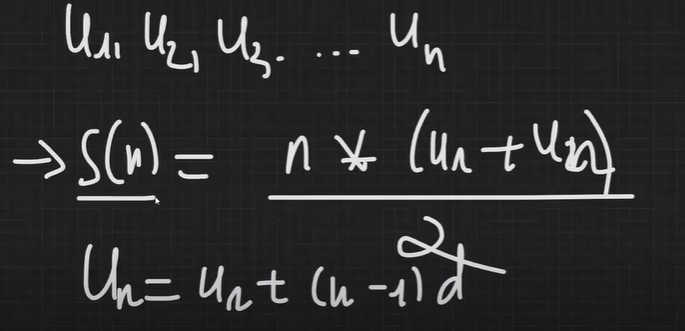 U₁, U₂, U₃. ... Uₙ
→ S(n) = n * (u₁ + uₙ) / 2
Uₙ = u₁ + (n - 1) d